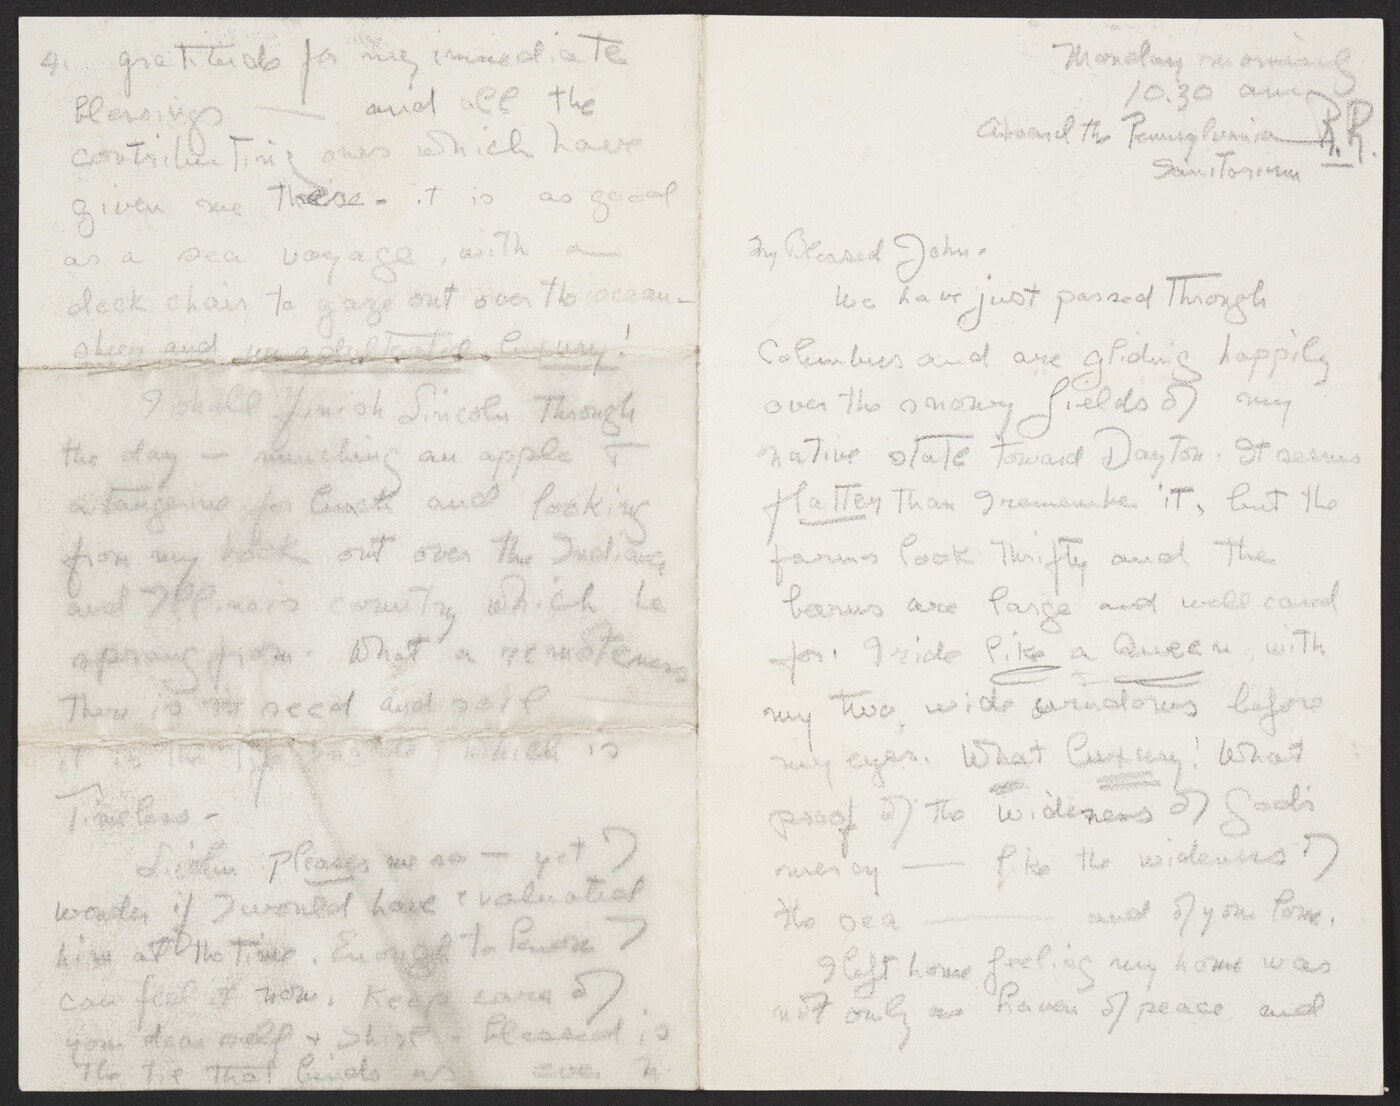 Monday morning
10.30 am
Aboard the Pennsylvania R.R.
Sanitorium
My Blessed John.
We have just passed Through
Columbus and are gliding happily
over the snowy fields of my
native state toward Dayton. It seems
flatter Than I remember it, but the
farms look Thrifty and The
barns are large and well cared
for. I ride like a Queen, with
my two wide windows before
my eyes. What luxury! What
proof of the wideness of God's
mercy — like the wideness of
the sea — and of your love.
I left home feeling my home was
not only a haven of peace and
4. gratitude for my immediate
blessings — and all the
contributing ones which have
given me these - it is as good
as a sea voyage, with a
deck chair to gaze out over the ocean -
sheer and unadulterated luxury!
I shall finish Lincoln Through
the day — munching an apple +
a tangerine for lunch and looking
from my book out over the Indiana
and Illinois country which he
sprang from. What a remoteness
There is in seed and soil —
it is the life which is
Timeless -
Lincoln pleases me so — yet I
wonder if I would have evaluated
him at the Time. Enough to know I
can feel it now. Keep care of
your dear self + - Blessed is
the tie that binds us ever N